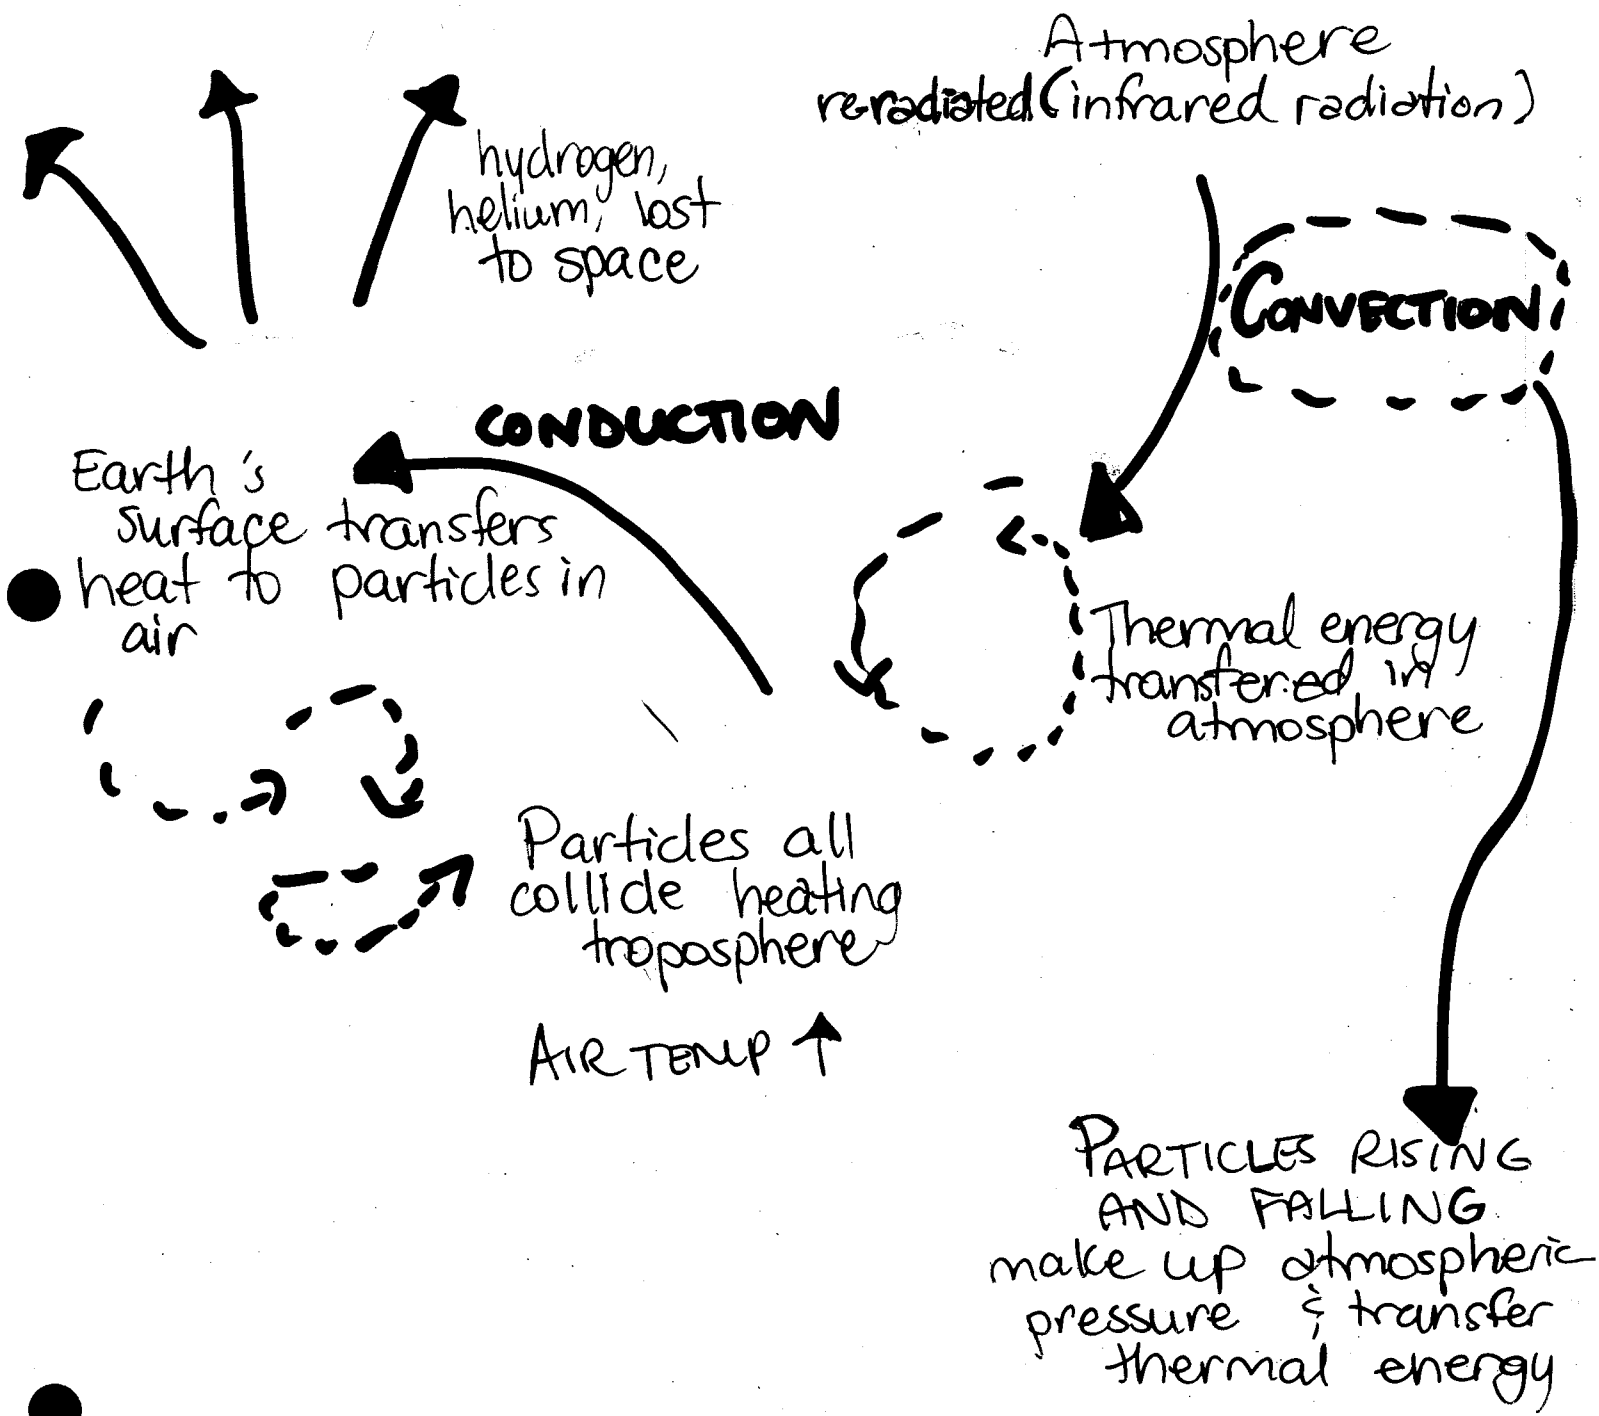 Atmosphere
re-radiated (infrared radiation)
hydrogen,
helium, lost
to space
CONVECTION
CONDUCTION
Earth's
surface transfers
heat to particles in
air
Thermal energy
transfered in
atmosphere
Particles all
collide heating
troposphere
AIR TEMP ↑
PARTICLES RISING
AND FALLING
make up atmospheric
pressure & transfer
thermal energy